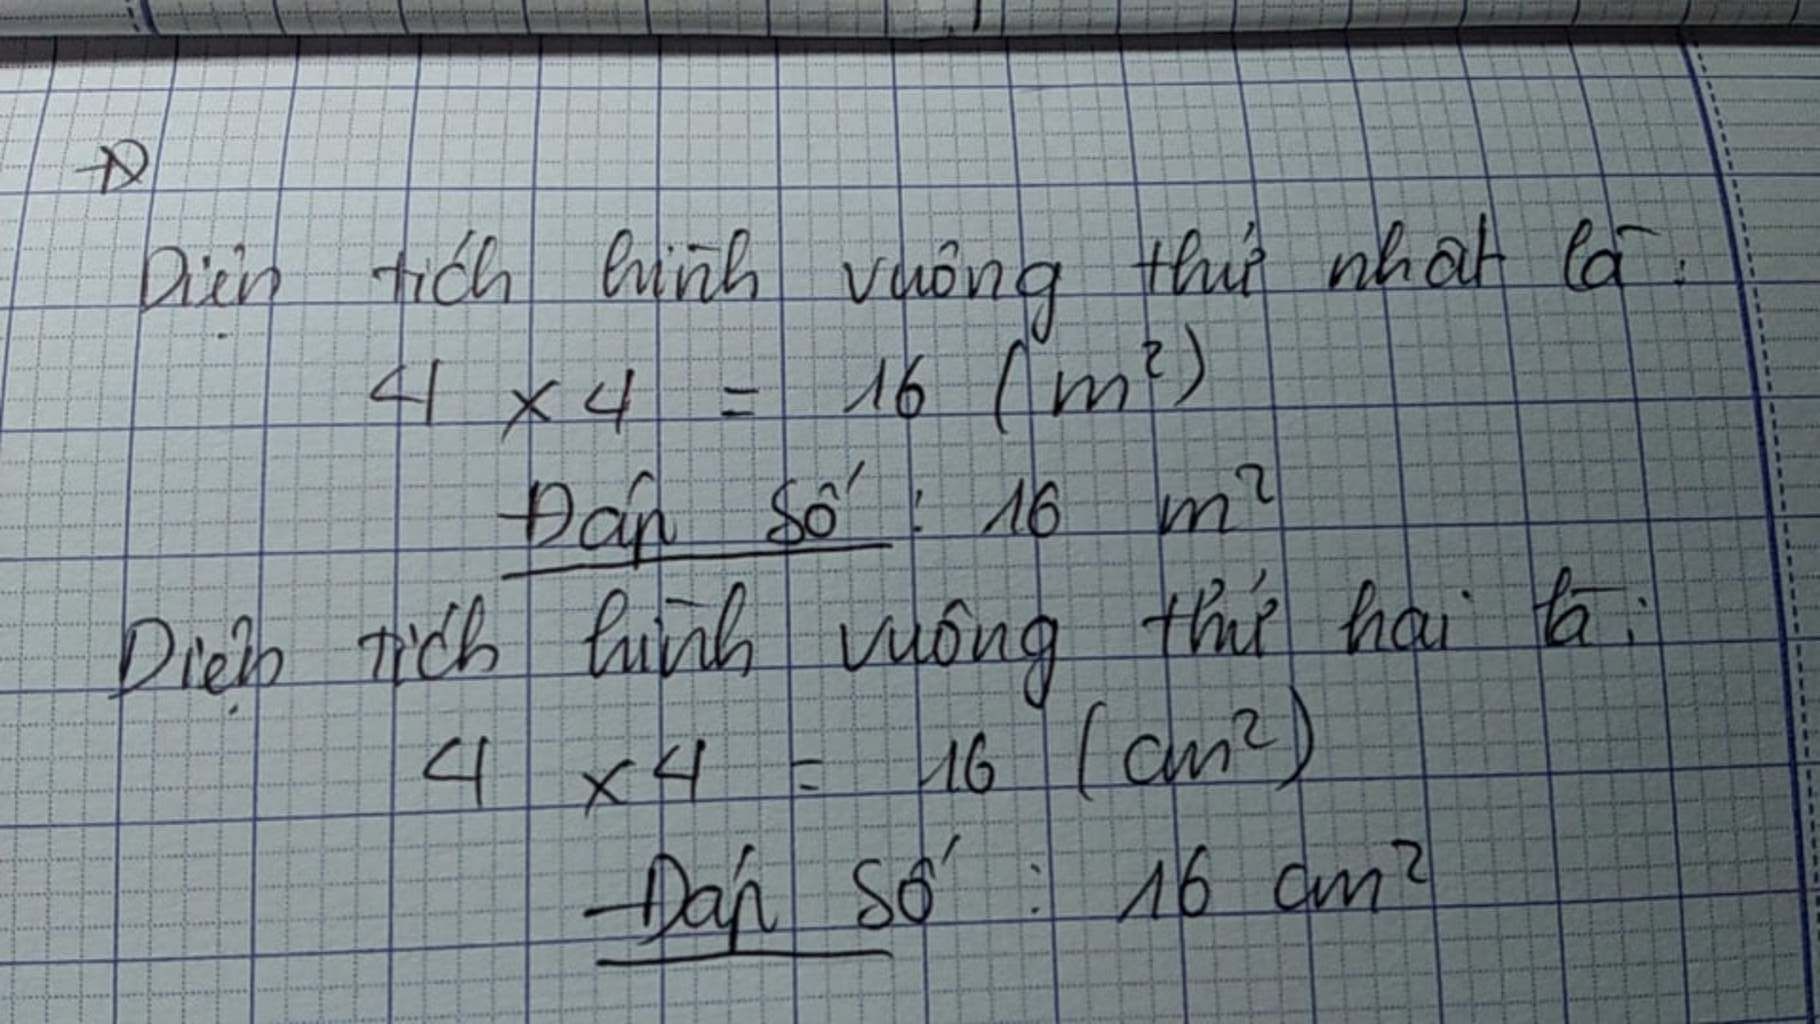 Diện tích hình vuông thứ nhất là:
4 x 4 = 16 (m²)
Đáp số: 16 m²
Diện tích hình vuông thứ hai là:
4 x 4 = 16 (cm²)
Đáp số: 16 cm²